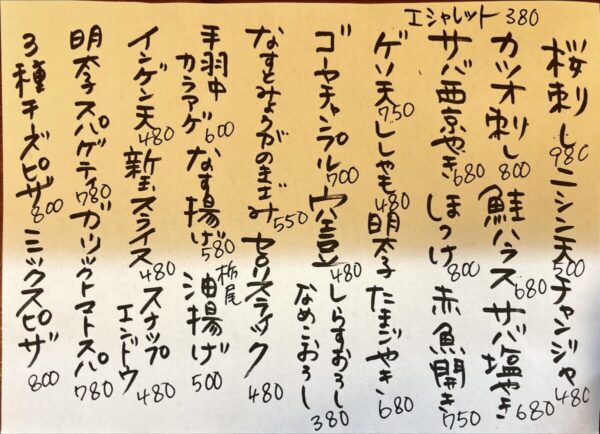 エシャレット 380
桜刺し 980 ニシン天 500 チャンジャ 480
カツオ刺し 800 鮭ハラス 680 サバ塩やき 680
サバ西京やき 680 ほっけ 800 赤魚開き 750
ゲソ天 750 ししゃも 480 明太子たまごやき 680
ゴーヤチャンプル 700 空豆 480 しらすおろし なめこおろし 380
なすとみょうがのきざみ 550 セロリスティック 480
手羽中カラアゲ 600 なす揚げ 580 栃尾油揚げ 500
インゲン天 480 新玉スライス 480 スナップエンドウ 480
明太子スパゲティ 780 ガーリックトマトスパ 780
3種チーズピザ 800 ミックスピザ 800